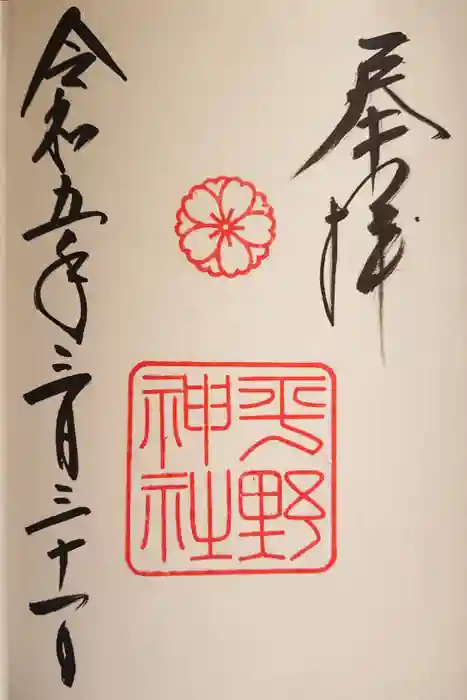 奉拝
平野
神社
令和五年三月三十一日